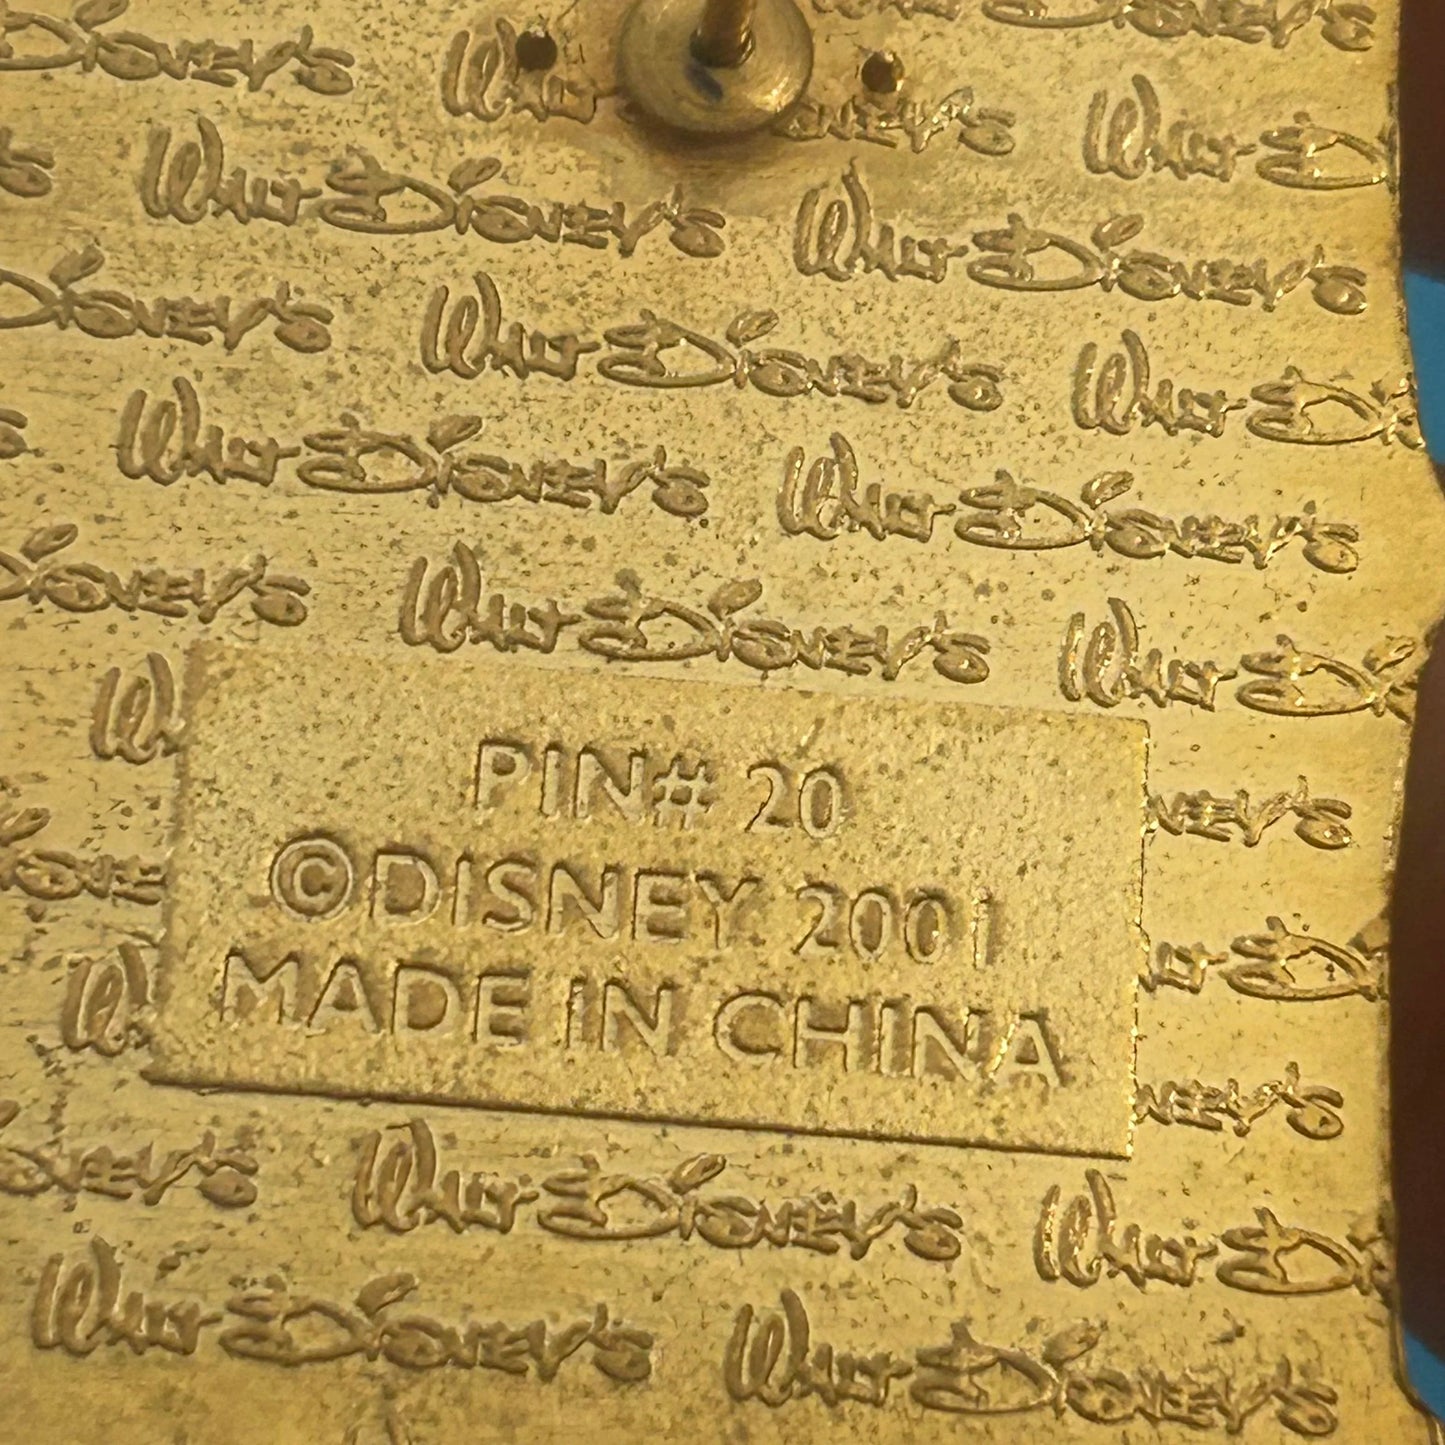 DISNEY'S WALT DISNEY'S WALT DISNEY'S
WALT DISNEY'S WALT D
WALT DISNEY'S WALT DISNEY'S
DISNEY'S WALT DISNEY'S WALT D
WALT DISNEY'S WALT DISNEY'S
DISNEY'S WALT DISNEY'S WALT D
PIN# 20
©DISNEY 2001
MADE IN CHINA
NEY'S WALT DISNEY'S WALT D
WALT DISNEY'S WALT DISNEY'S